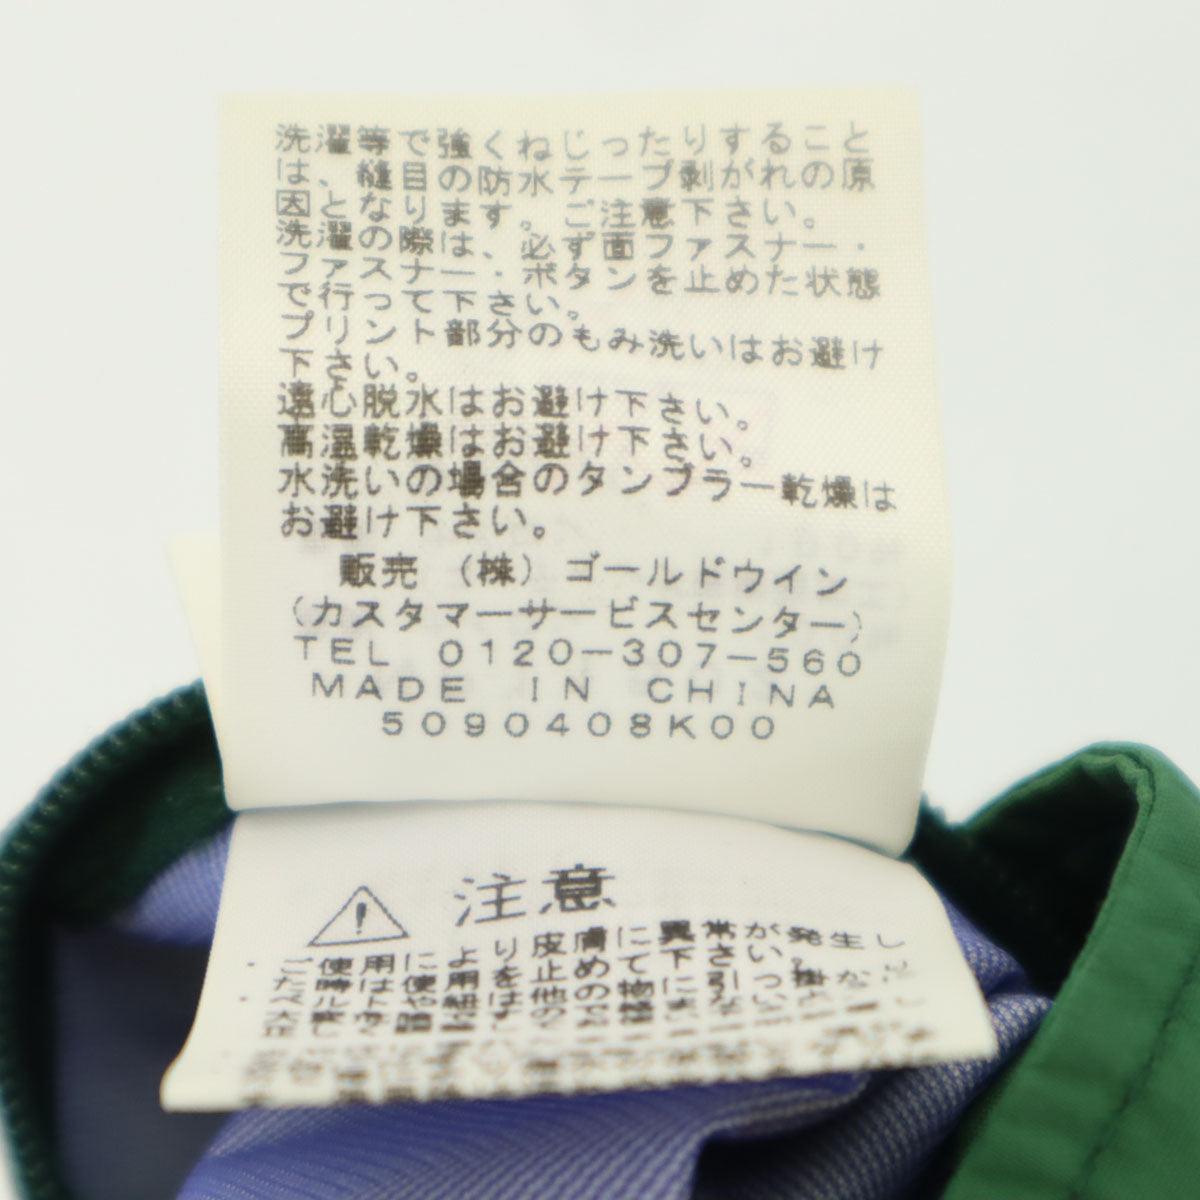 洗濯等で強くねじったりすること
は、縫目の防水テープ剥がれの原
因となります。ご注意下さい。
洗濯の際は、必ず面ファスナー・
ファスナー・ボタンを止めた状態
で行って下さい。
プリント部分のもみ洗いはお避け
下さい。
遠心脱水はお避け下さい。
高温乾燥はお避け下さい。
水洗いの場合のタンブラー乾燥は
お避け下さい。
販売 (株) ゴールドウイン
(カスタマーサービスセンター)
TEL 0120-307-560
MADE IN CHINA
5090408K00
注意
使用により皮膚に異常が発生し